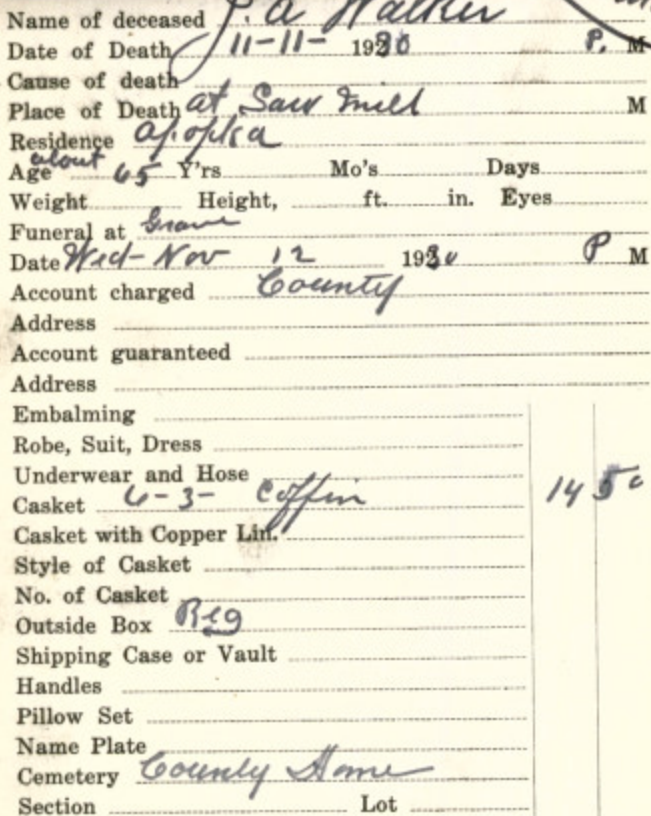 Name of deceased J. A Walker
Date of Death 11-11- 1930 P. M
Cause of death
Place of Death at Saw Mill M
Residence Apopka
Age about 65 Y'rs Mo's Days
Weight Height, ft. in. Eyes
Funeral at Grave
Date Wed-Nov 12 1930 P M
Account charged County
Address
Account guaranteed
Address
Embalming
Robe, Suit, Dress
Underwear and Hose
Casket 6-3- Coffin 14 50
Casket with Copper Lin.
Style of Casket
No. of Casket
Outside Box Reg
Shipping Case or Vault
Handles
Pillow Set
Name Plate
Cemetery County Home
Section Lot